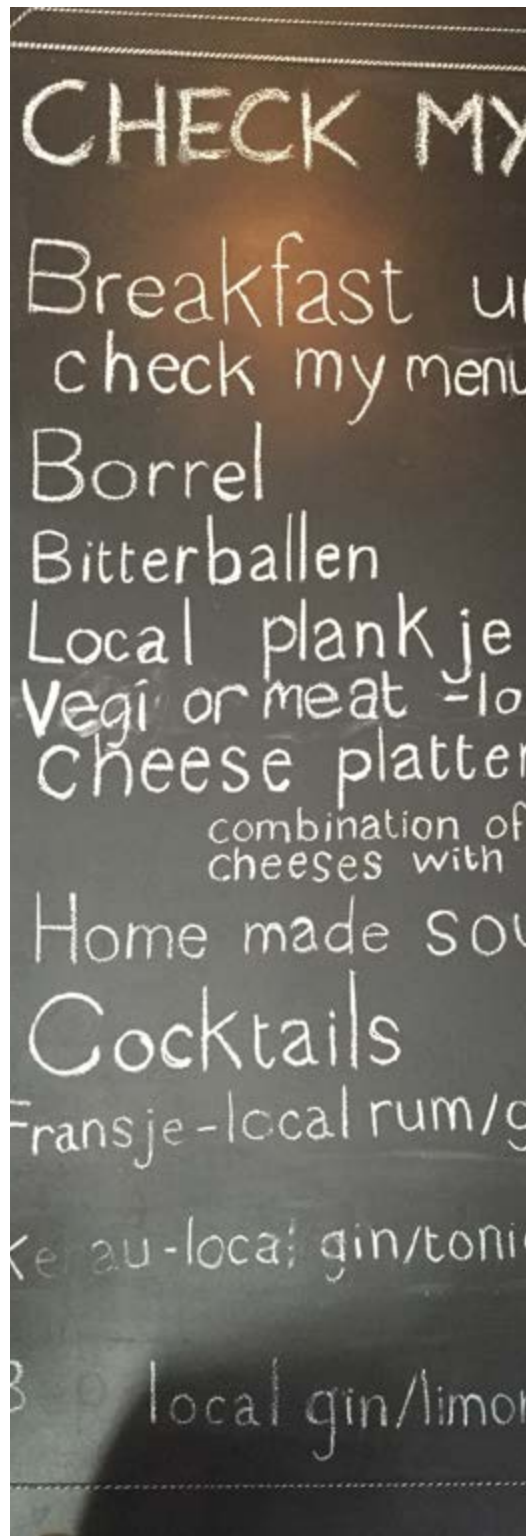 CHECK MY
Breakfast
check my menu
Borrel
Bitterballen
Local plankje
Vegi or meat
cheese platter
combination of
cheeses with
Home made
Cocktails
Fransje-local rum/
local gin/
local gin/